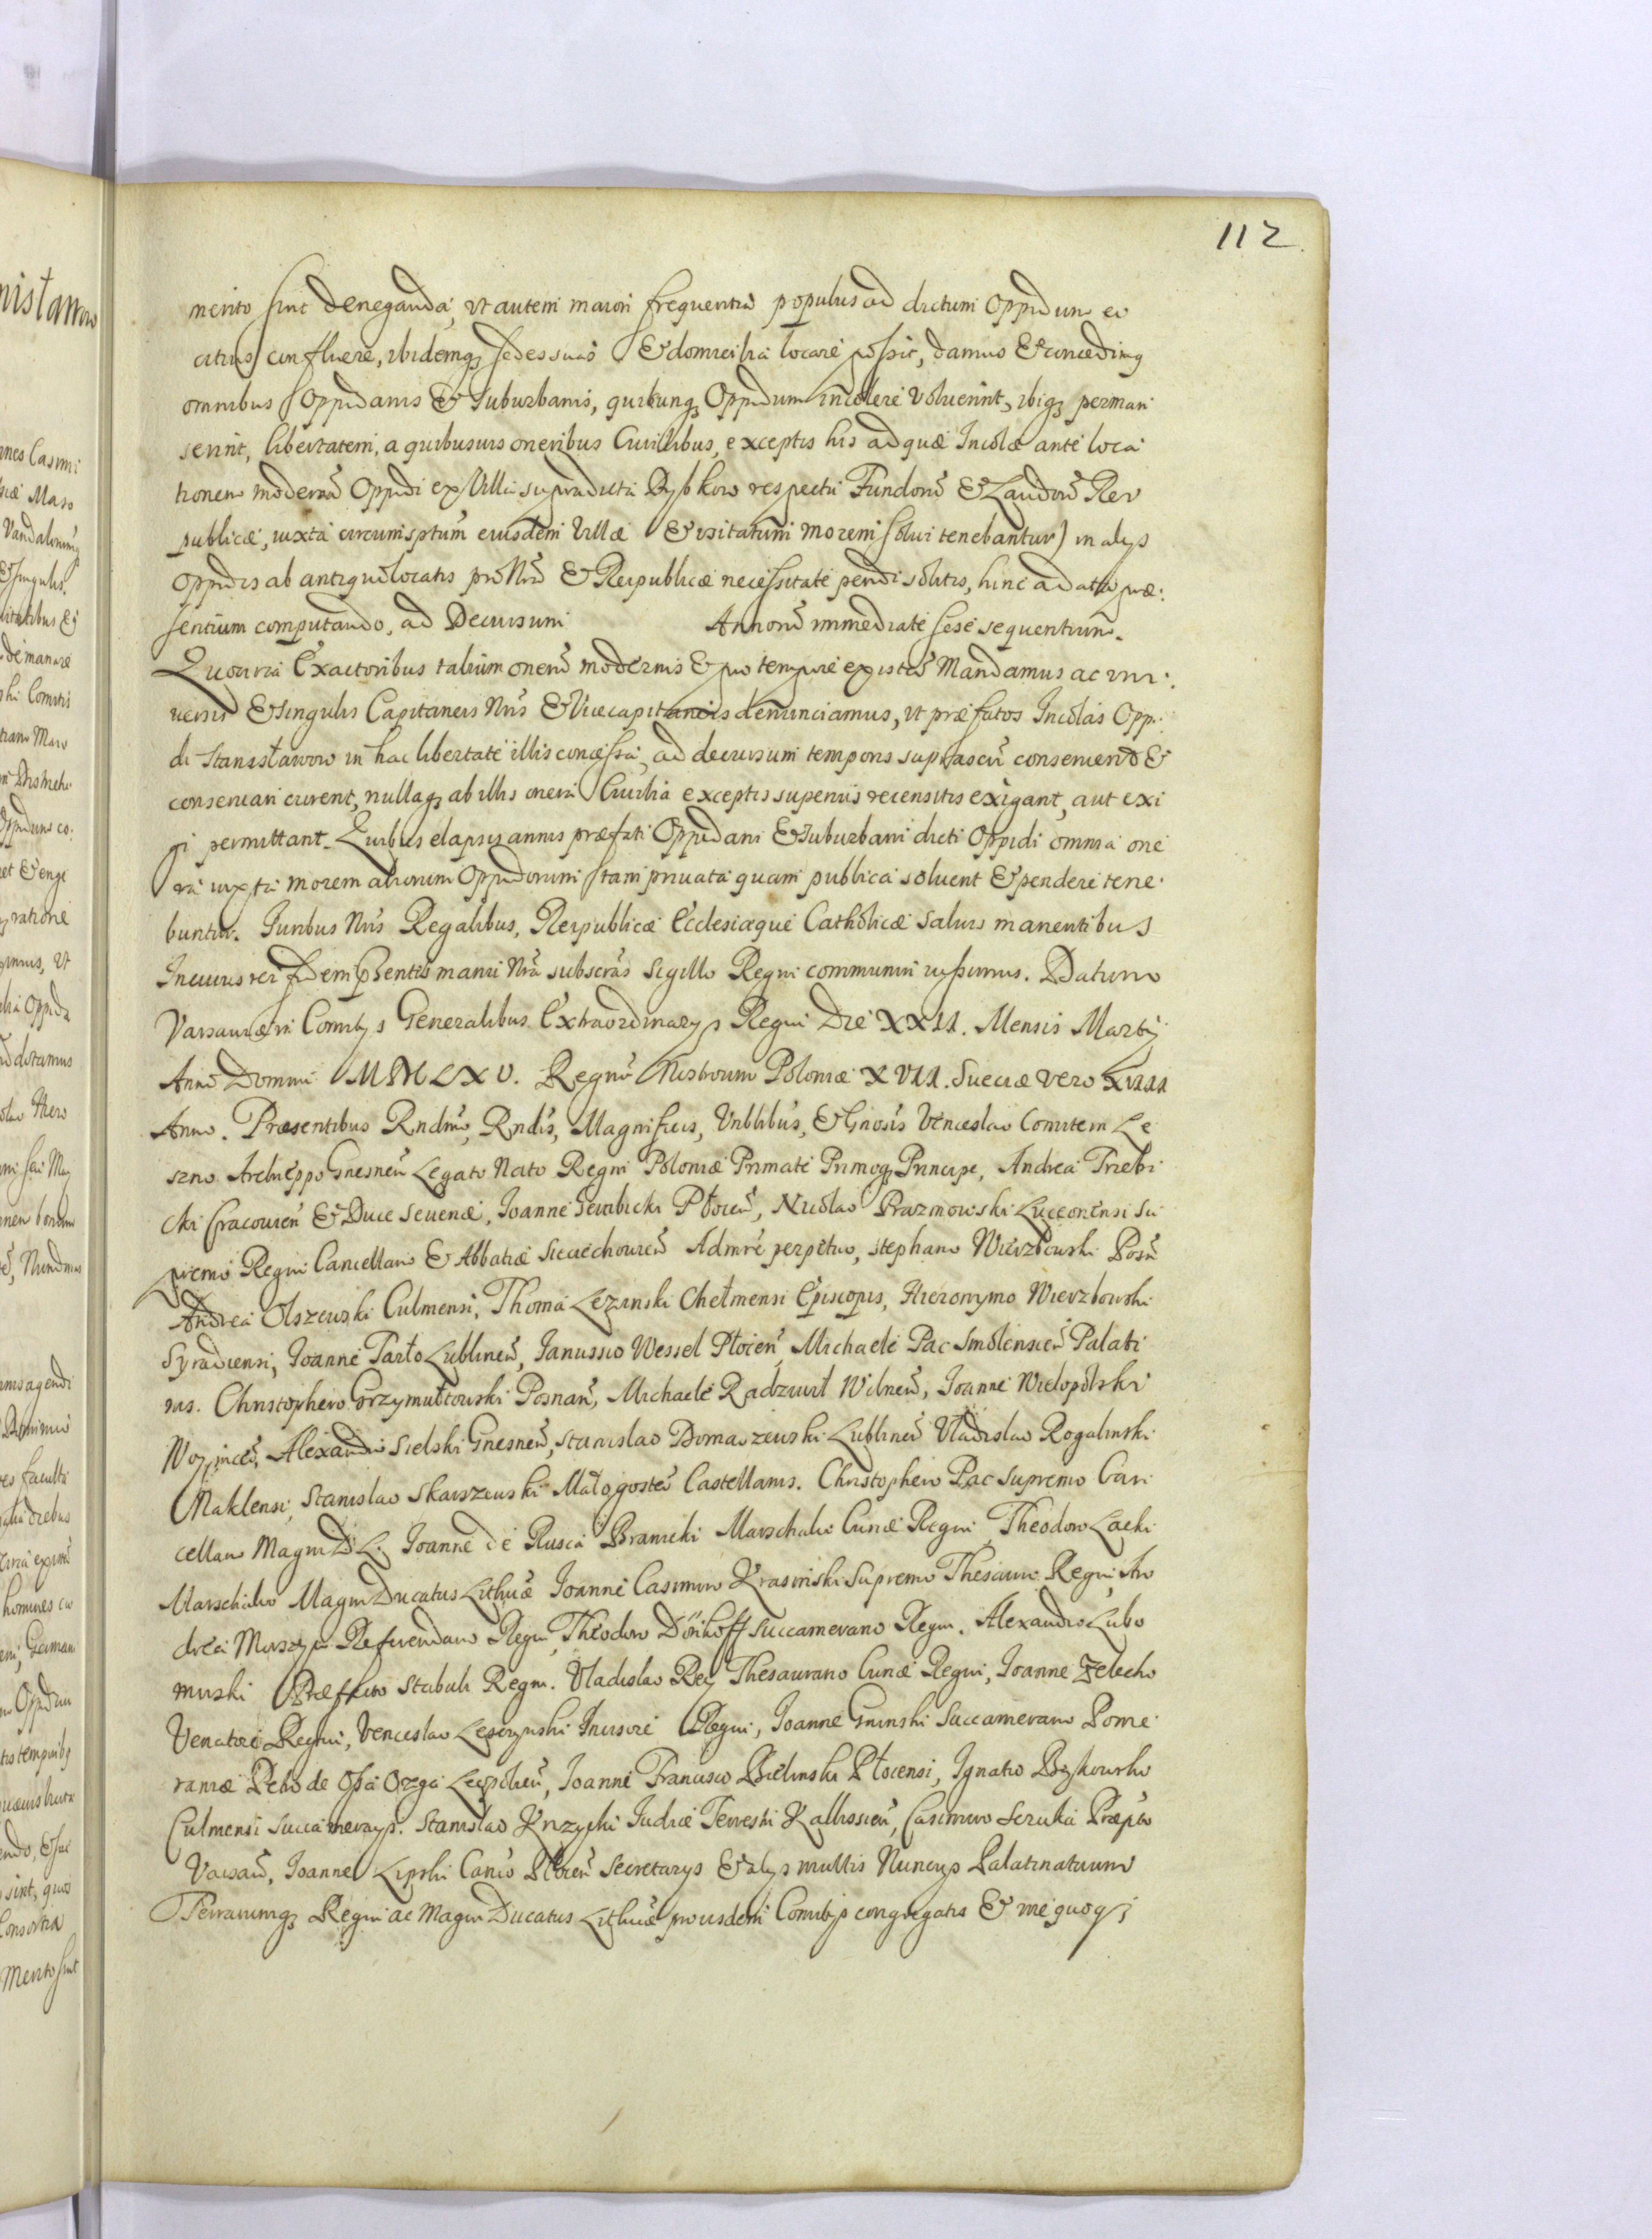 112
merito sint deneganda, ut autem maiori frequentia populus ad dictum Oppidum eo
citius confluere, ibidemq; sedes suas & domicilia locare possit, damus & concedimg
omnibus Oppidanis & Suburbanis, quicunq; Oppidum incolere voluerint, ibiq; perman
serint, libertatem, a quibusuis oneribus Ciuilibus, exceptis his ad quæ Incolæ ante loca
tionem modernã Oppidi ex Villa supradicta respectu Fundorũ & Laudorũ Rei
publicæ, iuxta eiusdem Villæ & usitatum morem solui tenebantur) in alijs
Oppidis ab antiquo locatis pro Nrã & Reipublicæ necessitate pendi solitis, hinc ad præ:
sentium computando, ad Decursum Annorũ immediate sese sequentium.
Quocirca Exactoribus talium onerũ modernis & pro tempore existẽ Mandamus ac uni:
uersis & singulis Capitaneis Nris & Vicecapitaneis denunciamus, ut præfatos Incolas Opp:
di Stanisławow in hac libertate illis concessa, ad decursum temporis supra &
conseruari curent, nullaq; ab illis onera Ciuilia exceptis superius recensitis exigant, aut exi
gi permittant. Quibus elapsis annis præfati Oppidani & Suburbani dicti Oppidi omnia one
ra iuxta morem aliorum Oppidorum tam priuata quam publica soluent & pendere tene:
buntur. Iuribus Nris Regalibus, Reipublicæ Ecclesiæque Catholicæ saluis manentibus
In cuius rei fidem pñsentes manu Nrã subscrãs Sigillo Regni communiri iussimus. Datum
Varsauiæ in Comitijs Generalibus Extraordinarijs Regni Die XXII. Mensis Martij
Anno Domini MDCLXV. Regnorũ Nostrorum Poloniæ XVII. Sueciæ vero XVIII
Anno. Præsentibus Rndmo, Rndis, Magnificis, & Gnosis Venceslao Comite in Le
szno Archieppo Gnesneñ Legato Nato Regni Poloniæ Primate Primoq; Principe, Andrea Trzebi
cki Cracouieñ & Duce Seueriæ, Joanne Gembicki Płoceñ, Nicolao Prazmowski Luceoriensi Su
premo Regni Cancellario & Abbatiæ Sieciechouieñ Admrẽ perpetuo, Stephano Wierzbowski Posñ
Andrea Olszewski Culmensi, Thoma Lezenski Chełmensi Episcopis, Hieronymo Wierzbowski
Syradiensi, Joanne Tarło Lublineñ, Janussio Wessel Płoceñ, Michaele Pac Smolensceñ Palati
nis. Christophero Grzymułtowski Posnañ, Michaele Radziwił Vilneñ, Joanne Wielopolski
Woyniceñ, Alexandro Sielski Gnesneñ, Stanislao Domaszewski Lublineñ Vladislao Rogalinski
Naklensi, Stanislao Skarszewski Małogosteñ Castellanis. Christophero Pac Supremo Can
cellario Magni D. L. Joanne de Rusca Branicki Marschalco Curiæ Regni Theodoro Lacki
Marschalco Magni Ducatus Lithuæ Joanne Casimiro Krasinski Supremo Thesaur: Regni An
drea Morsztyn Referendario Regni, Theodoro Dönhoff Succamerario Regni, Alexandro Lubo
mirski Præfecto Stabuli Regni. Vladislao Rey Thesaurario Curiæ Regni, Joanne Zelecki
Venatore Regni, Venceslao Lesczynski Incisore Regni, Joanne Gninski Succamerario Pome
raniæ Petro de Osa Ozga Leopolieñ, Joanne Francisco Bielinski Płocensi, Ignatio Bąkowski
Culmensi Succamerarijs. Stanislao Krzycki Iudice Terrestri Kallissieñ, Casimiro Szczuka Præpto
Varsauñ, Joanne Lipski Canco Płoceñ Secretarijs & alijs multis Nuncijs Palatinatuum
Terrarumq; Regni ac Magni Ducatus Lithuæ pro ijsdem Comitijs congregatis & me quoq;